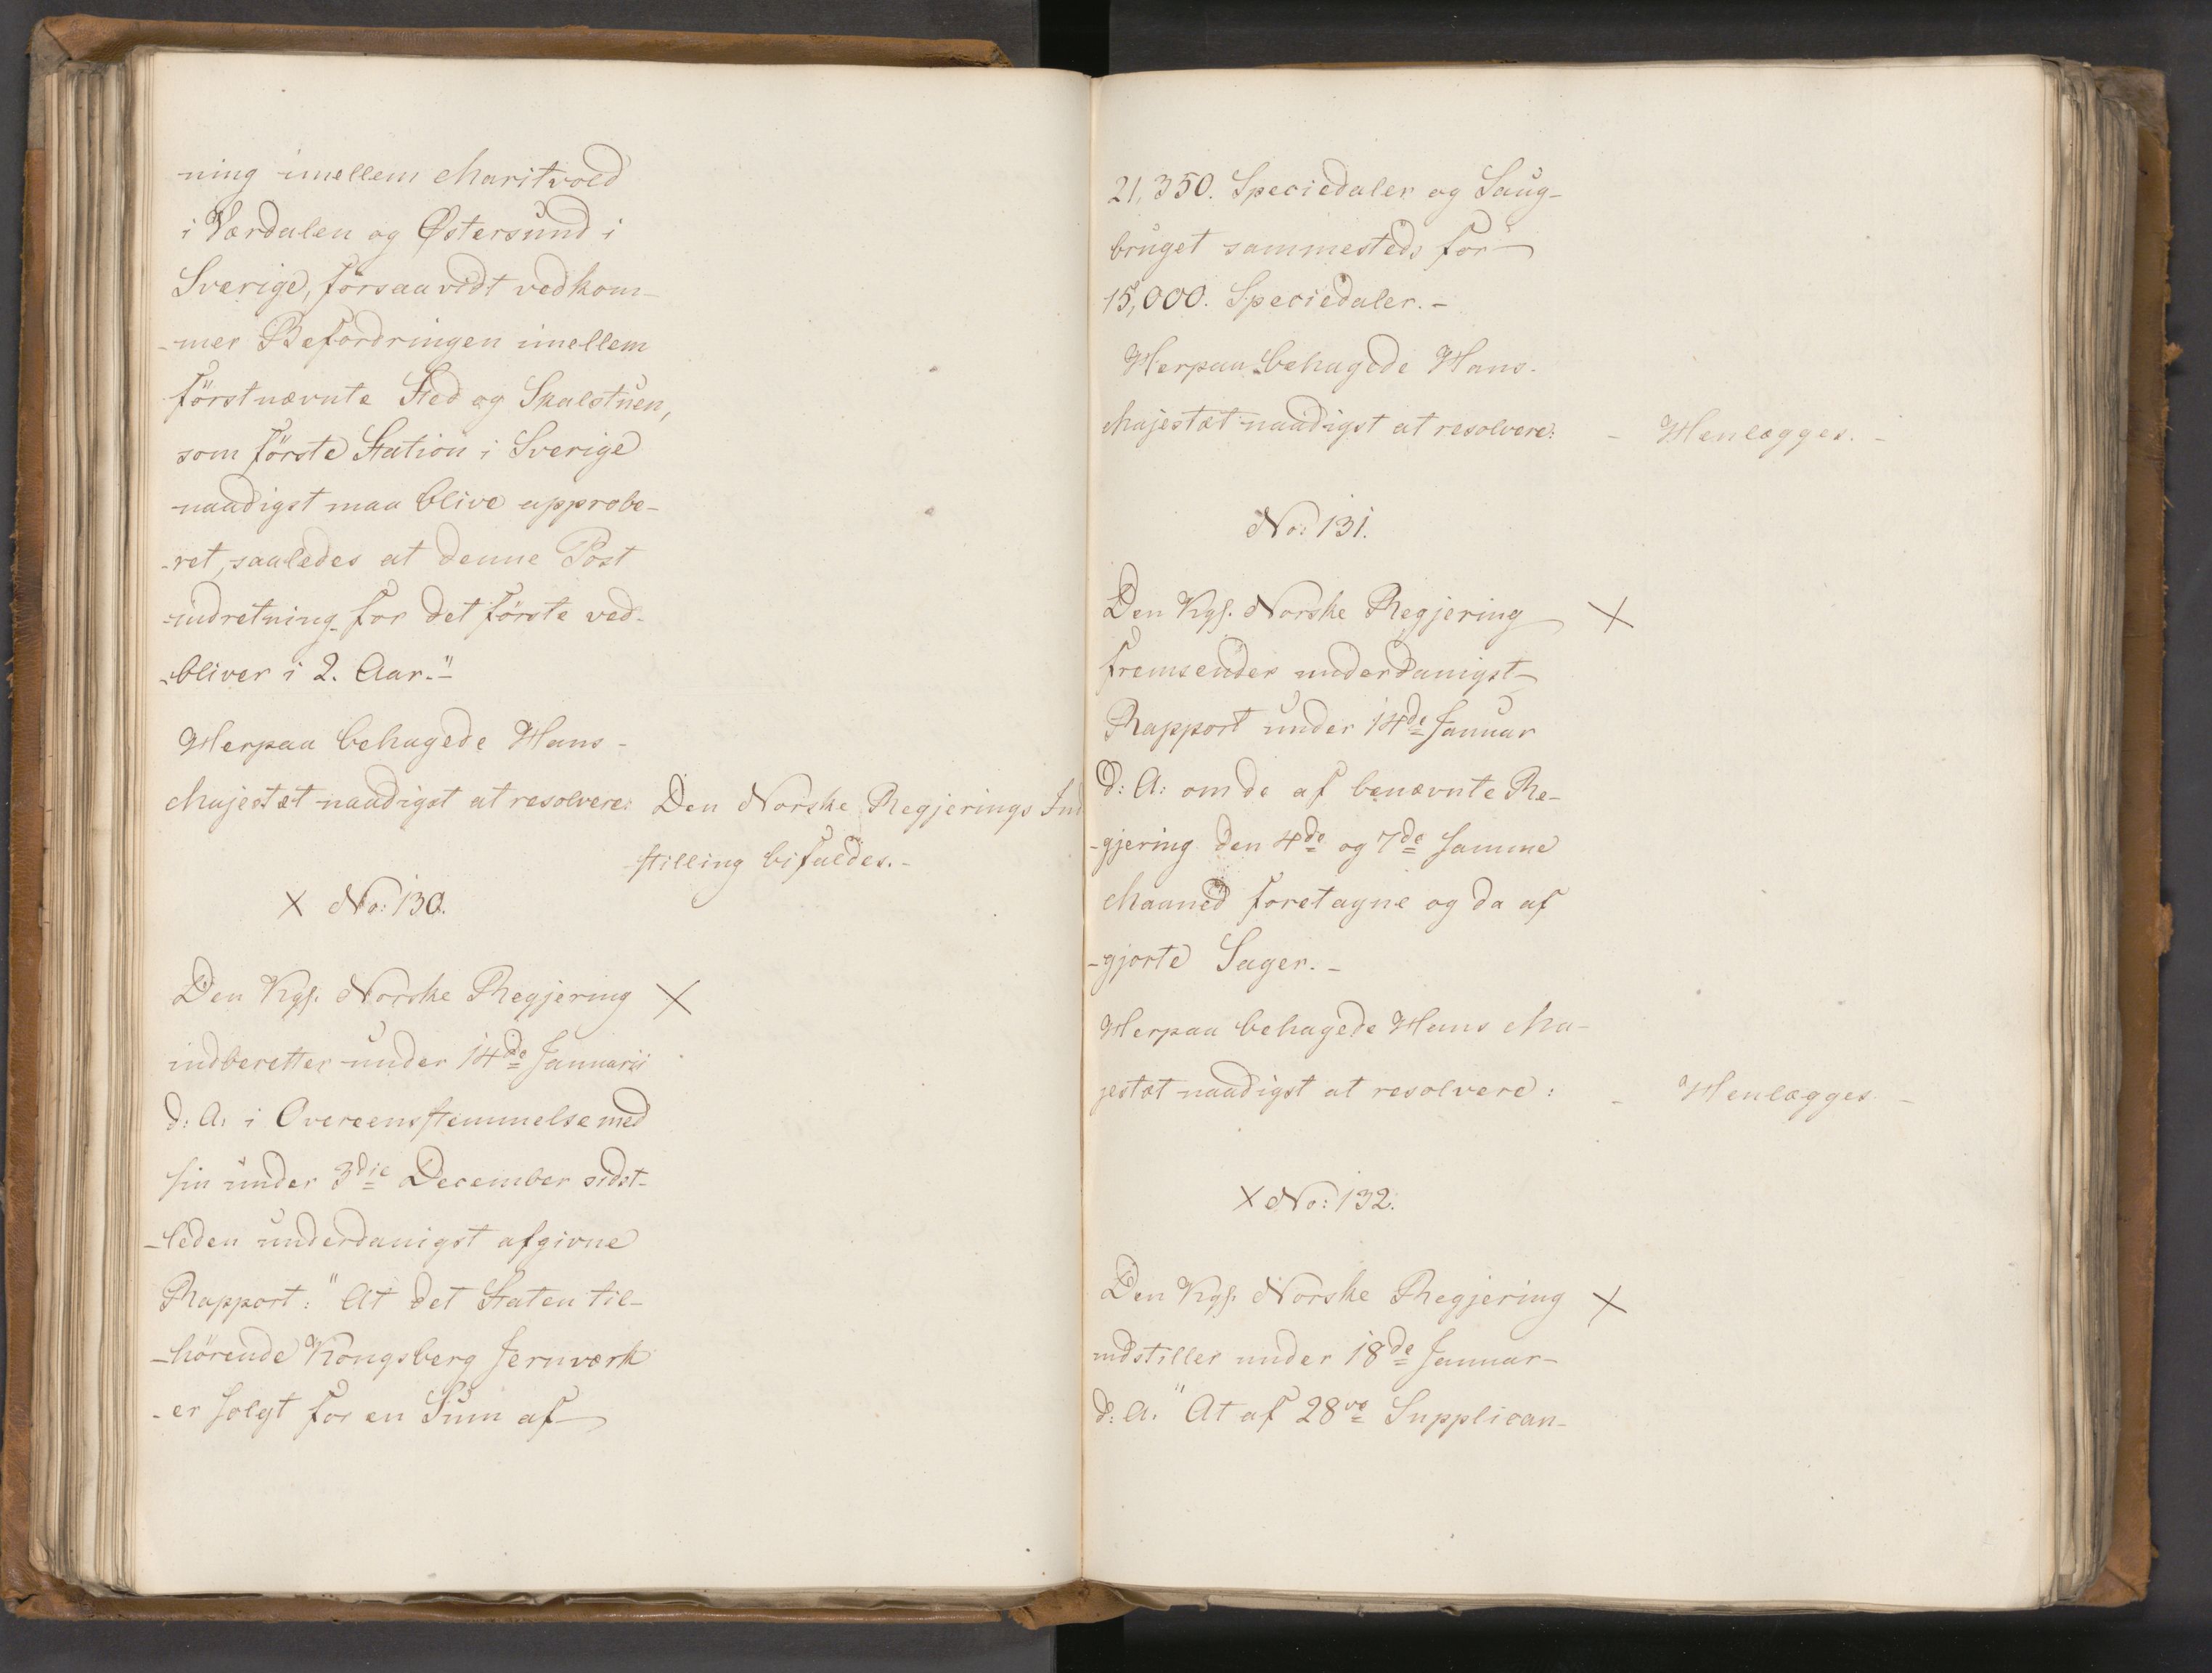 -ning imellem Maritvold
i Værdalen og Østersund i
Sverige, forsaavidt vedkom-
-mer Befordringen imellem
förstnævnte Sted og Skalstuen,
som förste Station i Sverige
naadigst maa blive approbe-
-ret, saaledes at denne Post
-indretning for det förste ved-
-bliver i 2. Aar."-
Herpaa behagede Hans-
Majestæt naadigst at resolvere: Den Norske Regjerings Ind
-stilling bifaldes.-
X No: 130.
Den Kgl. Norske Regjering X
indberetter under 14de Januarii
d: A: i Overeensstemmelse med
sin under 3die December sidst-
-leden underdanigst afgivne
Rapport: "At det Staten til-
-hörende Kongsberg Jernværk
-er solgt for en Sum af
21,350. Speciedaler og Saug-
bruget sammesteds for-
15,000. Speciedaler.-
Herpaa behagede Hans-
Majestæt naadigst at resolvere: - Henlægges.-
No: 131.
Den Kgl. Norske Regjering X
fremsender underdanigst-
Rapport under 14de Januar
D: A: om de af benævnte Re-
-gjering den 4de og 7de samme
Maaned foretagne og da af
-gjorte Sager.-
Herpaa behagede Hans Ma-
jestæt naadigst at resolvere: - Henlægges -
X No: 132.
Den Kgl. Norske Regjering X
indstiller under 18de Januar-
d: A. "At af 28ve Supplican-